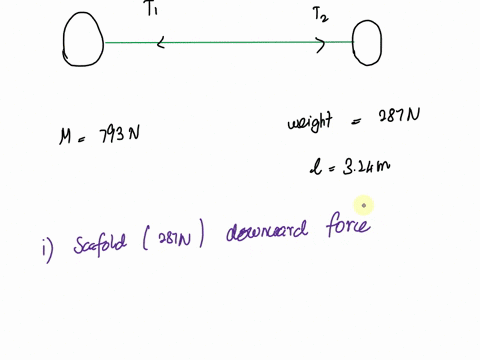 T₁ T₂
M = 793 N
weight = 287 N
l = 3.24 m
i) Scafold (287N) downward force